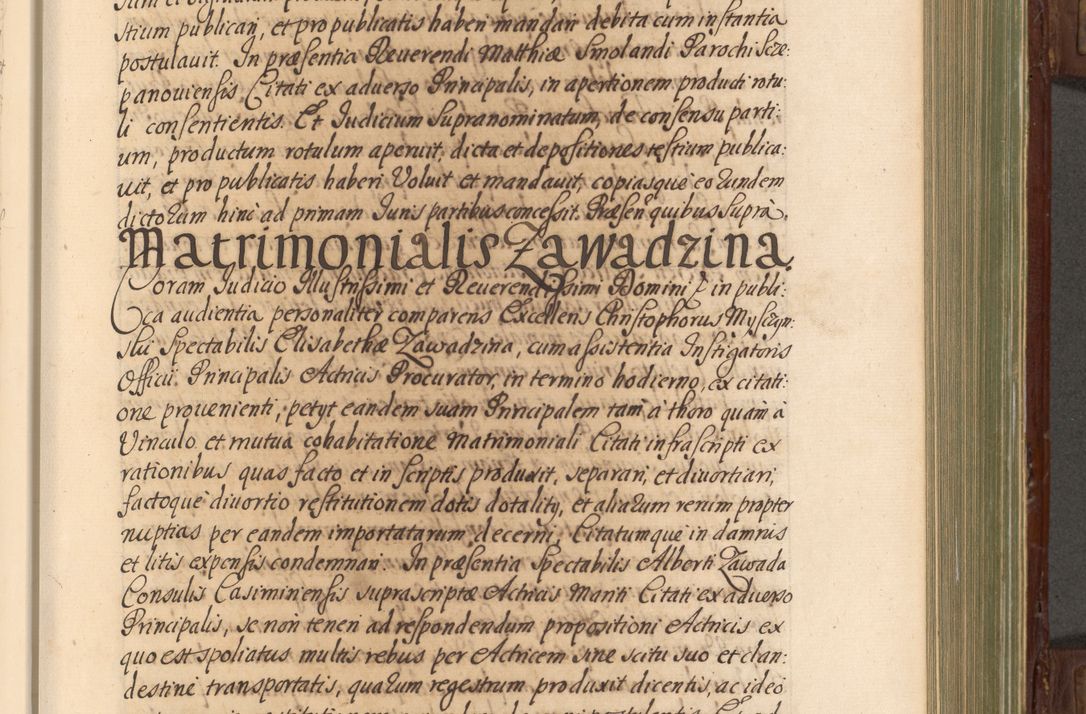 stium publicari, et pro publicatis haberi mandari debita cum instantia
postulauit. In præsentia Reuerendi Matthiæ Smolandi Parochi Scze:
panouiensis Citati ex aduerso Principalis, in apertionem producti rotu:
li consentientis. Et Iudicium Supranominatum, de consensu parti:
um, productum rotulum aperuit, dicta et depositiones testium publica:
uit, et pro publicatis haberi Voluit et mandauit, copiasque eorundem
dictorum hinc ad primam Iuris partibus concessit. Præsen quibus Supra.
Matrimonialis Zawadzina.
Coram Iudicio Illustrissimi et Reuerendissimi Domini in publi:
ca audientia personaliter comparens Excellens Christophorus Mysczyn:
ski Spectabilis Elisabethæ Zawadzina, cum assistentia Instigatoris
Officii Principalis Actricis Procurator, in termino hodierno, ex citati:
one prouenienti, petyt eandem suam Principalem tam à thoro quam à
Vinculo et mutua cohabitatione Matrimoniali Citati infrascripti ex
rationibus quas facto et in scriptis produxit, separari, et diuortiari,
factoque diuortio restitutionem dotis dotality, et aliarum rerum propter
nuptias per eandem importatarum decerni, Citatumque in damnis
et litis expensis condemnari. In præsentia Spectabilis Alberti Zawada
Consulis Casimiriensis suprascriptæ Actricis Mariti Citati ex aduerso
Principalis, se non teneri ad respondendum propositioni Actricis ex
quo est spoliatus multis rebus per Actricem sine scitu suo et clan:
destine transportatis, quarum regestrum produxit dicentis, ac ideo